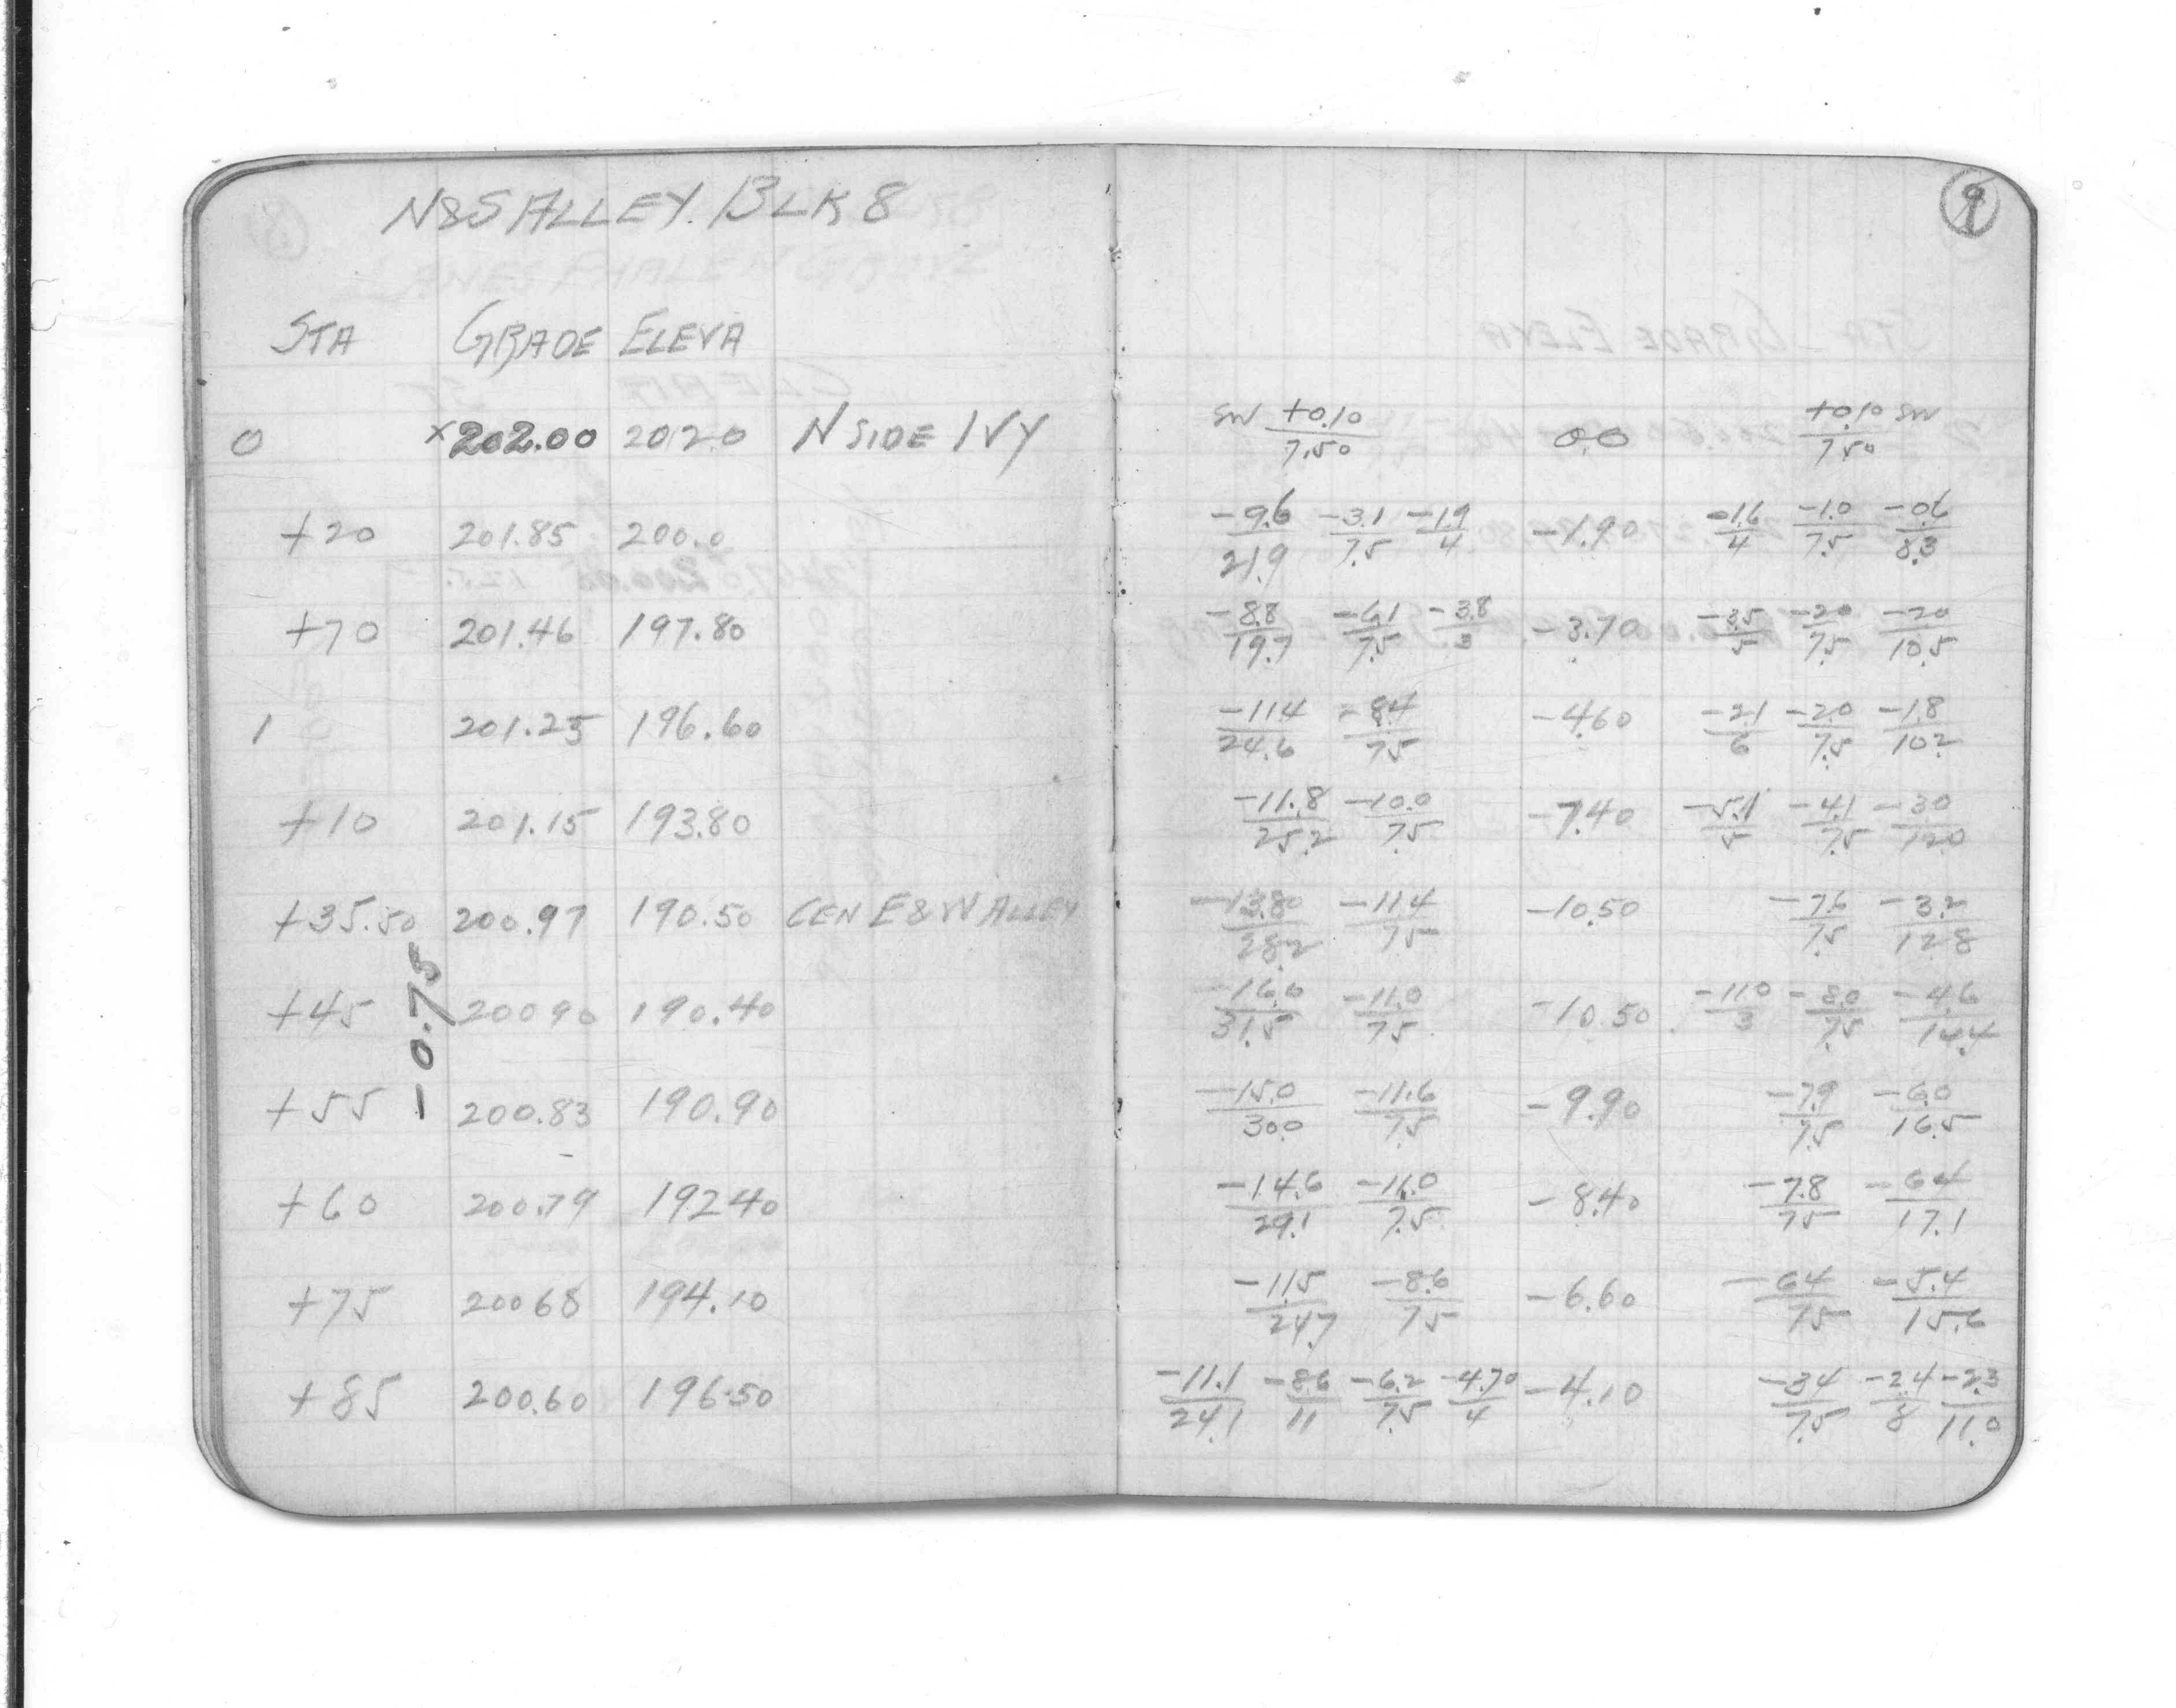 N&S ALLEY. BLK 8
9
STA GRADE ELEVA
0 x202.00 202.0 N SIDE IVY SW +0.10/7.50 0.0 +0.10/7.50 SW
+20 201.85 200.0 -9.6/21.9 -3.1/7.5 -1.9/4 -1.90 -1.6/4 -1.0/7.5 -0.6/8.3
+70 201.46 197.80 -8.8/19.7 -6.1/7.5 -3.8/3 -3.70 -3.5/5 -2.0/7.5 -2.0/10.5
1 201.23 196.60 -11.4/24.6 -8.4/7.5 -4.60 -2.1/6 -2.0/7.5 -1.8/10.2
+10 201.15 193.80 -11.8/25.2 -10.0/7.5 -7.40 -5.1/5 -4.1/7.5 -3.0/12.0
+35.50 200.97 190.50 CEN E&W ALLEY -13.80/28.2 -11.4/7.5 -10.50 -7.6/7.5 -3.2/12.8
-0.75
+45 200 90 190.40 -16.0/31.5 -11.0/7.5 -10.50 -11.0/3 -8.0/7.5 -4.6/14.4
+55 200.83 190.90 -15.0/30.0 -11.6/7.5 -9.90 -7.9/7.5 -6.0/16.5
+60 200.79 192 40 -14.6/29.1 -11.0/7.5 -8.40 -7.8/7.5 -6.4/17.1
+75 200 68 194.10 -11.5/24.7 -8.6/7.5 -6.60 -6.4/7.5 -5.4/15.6
+85 200.60 196.50 -11.1/24.1 -8.6/11 -6.2/7.5 -4.70/4 -4.10 -3.4/7.5 -2.4/8 -2.3/11.0